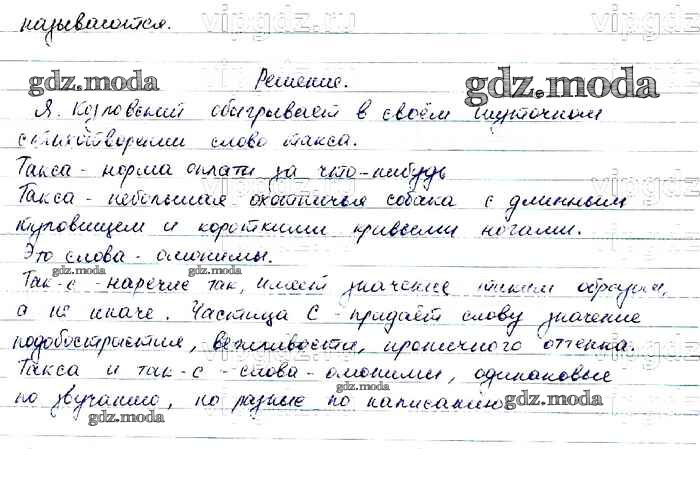 называются.
Решение.
Я. Козловский обыгрывает в своём шуточном
стихотворении слово такса.
Такса - норма оплаты за что-нибудь
Такса - небольшая охотничья собака с длинным
туловищем и короткими кривыми ногами.
Это слова - омонимы.
Так-с - наречие так, имеет значение таким образом,
а не иначе. Частица С - придаёт слову значение
подобострастия, вежливости, ироничного оттенка.
Такса и так-с - слова - омонимы, одинаковые
по звучанию, но разные по написанию
gdz.moda
gdz.moda
gdz.moda
gdz.moda
gdz.moda
gdz.moda
gdz.moda
vipgdz.ru
vipgdz
vipgdz.ru
vipgdz
vipgdz.ru
vipgdz